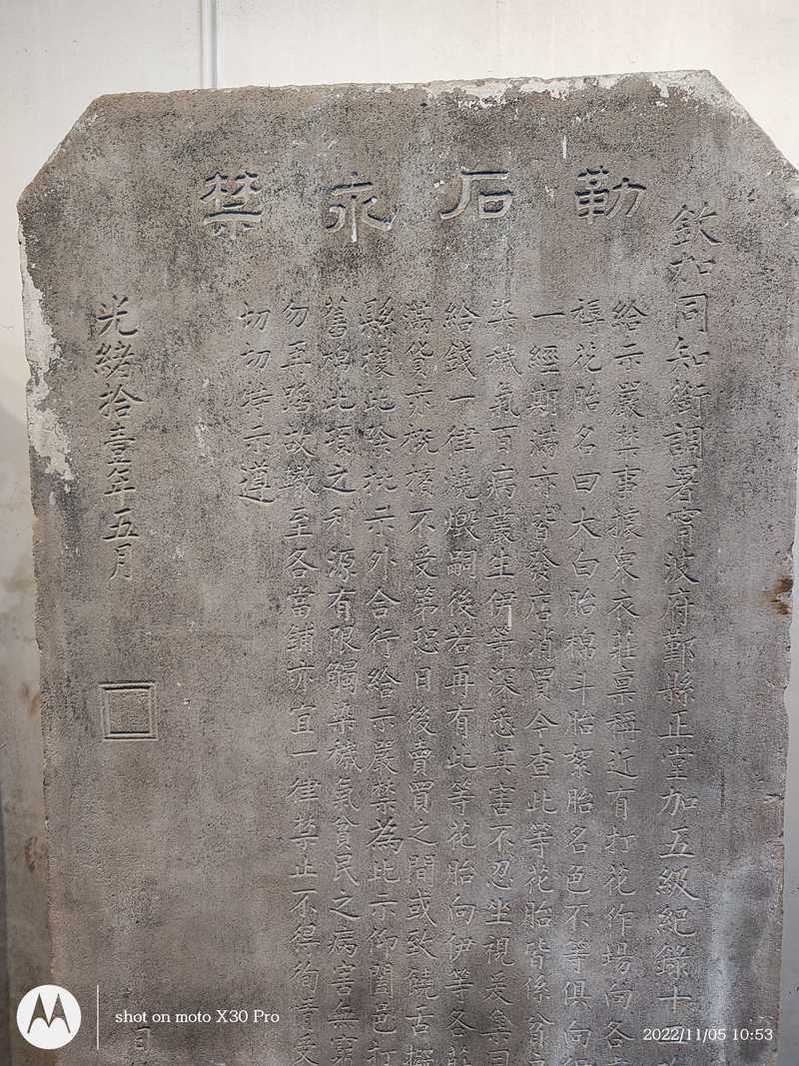 勒石永禁
欽加同知銜調署甯波府鄞縣正堂加五級紀錄十
給示嚴禁事據衆衣莊稟稱近有打花作場向各
褥花胎名曰大白胎棉斗胎絮胎名色不等俱向
一經期滿亦皆發店消買今查此等花胎皆係貧
染穢氣百病叢生伊等深悉其害不忍坐視爰集同
給錢一律燒燬嗣後若再有此等花胎向伊等各
蕩貨亦概擯不受第恐日後賣買之間或致饒舌
縣據此除批示外合行給示嚴禁為此示仰闔邑打
舊棉此項之利源有限觸染穢氣貧民之病害無窮
勿再蹈故轍至各當鋪亦宜一律禁止不得徇情受
切切特示遵
光緒拾壹年五月
shot on moto X30 Pro
2022/11/05 10:53